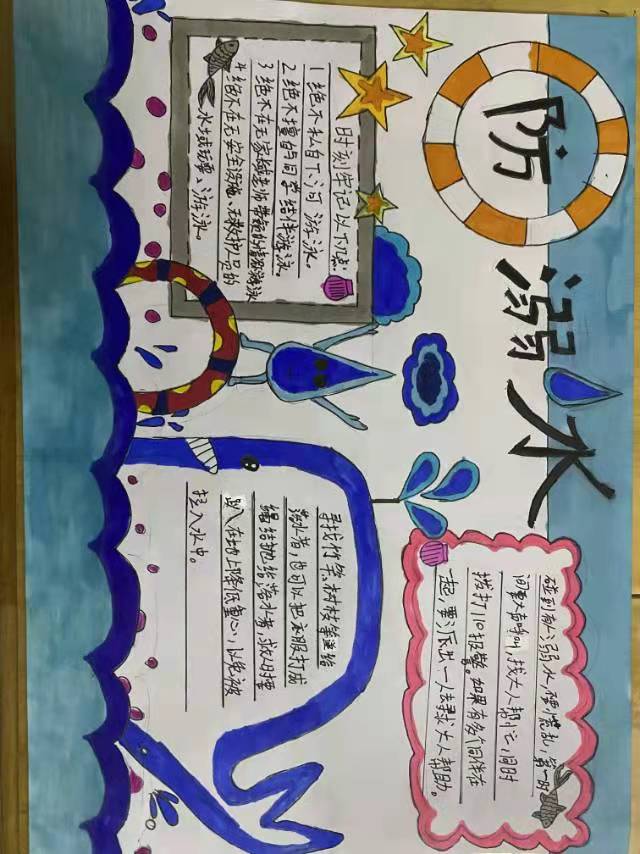 防溺水
时刻牢记以下几点:
1 绝不私自下河游泳。
2 绝不擅自同学结伴游泳。
3 绝不在无家长老师带领的情况游泳
4 绝不在无安全设施、无救护人员的
水域玩耍、游泳。
碰到有人溺水,硬慌乱,第一时
间要大声呼叫,找大人帮忙,同时
拨打110报警。如果有多个同伴在
一起,要派出一人去寻求大人帮助。
寻找竹竿、树枝等递给
落水者,也可以把衣服打成
绳结抛给落水者,救人时要
趴在地上降低重心,以免被
拉入水中。